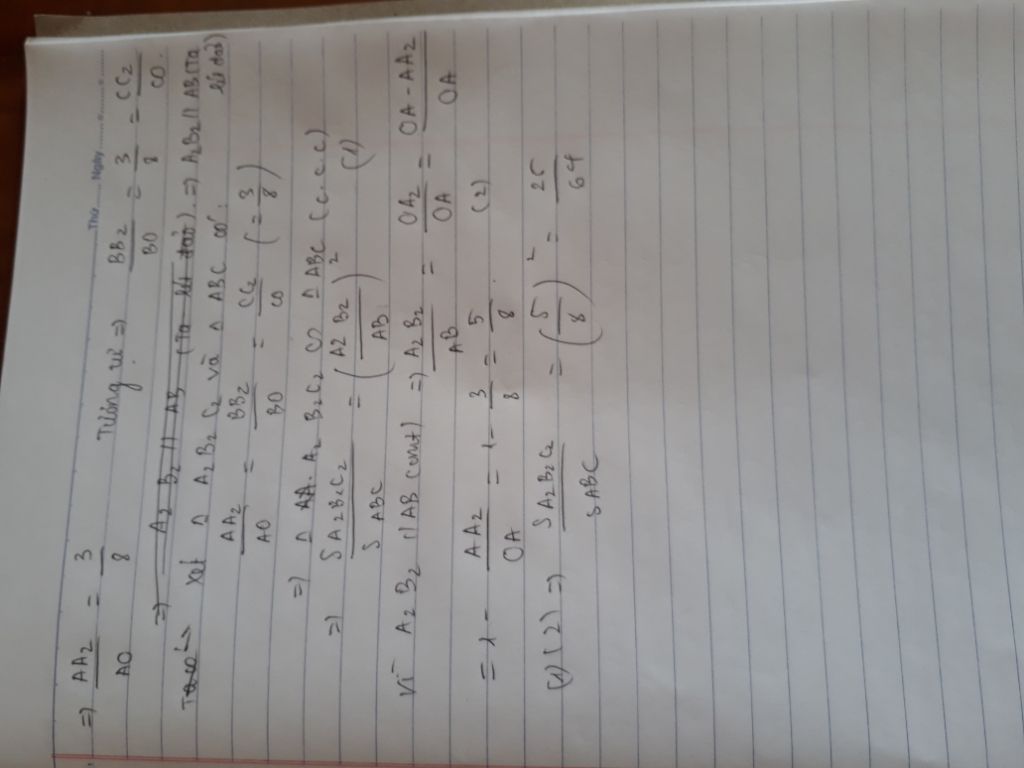 Thứ ........ Ngày ........
=> AA2/AO = 3/8 Tương tự => BB2/BO = 3/8 = CC2/CO.
=> A2 B2 // AB (Ta lét đảo). => A2B2 // AB (Ta lét đảo)
Ta có Xét Δ A2B2C2 và Δ ABC có:
AA2/AO = BB2/BO = CC2/CO (= 3/8)
=> Δ A2B2C2 ∽ Δ ABC (c.c.c)
=> S A2B2C2 / S ABC = (A2B2/AB)² (1)
Vì A2B2 // AB (cmt) => A2B2/AB = OA2/OA = OA - AA2/OA
= 1 - AA2/OA = 1 - 3/8 = 5/8. (2)
(1)(2) => S A2B2C2 / S ABC = (5/8)² = 25/64